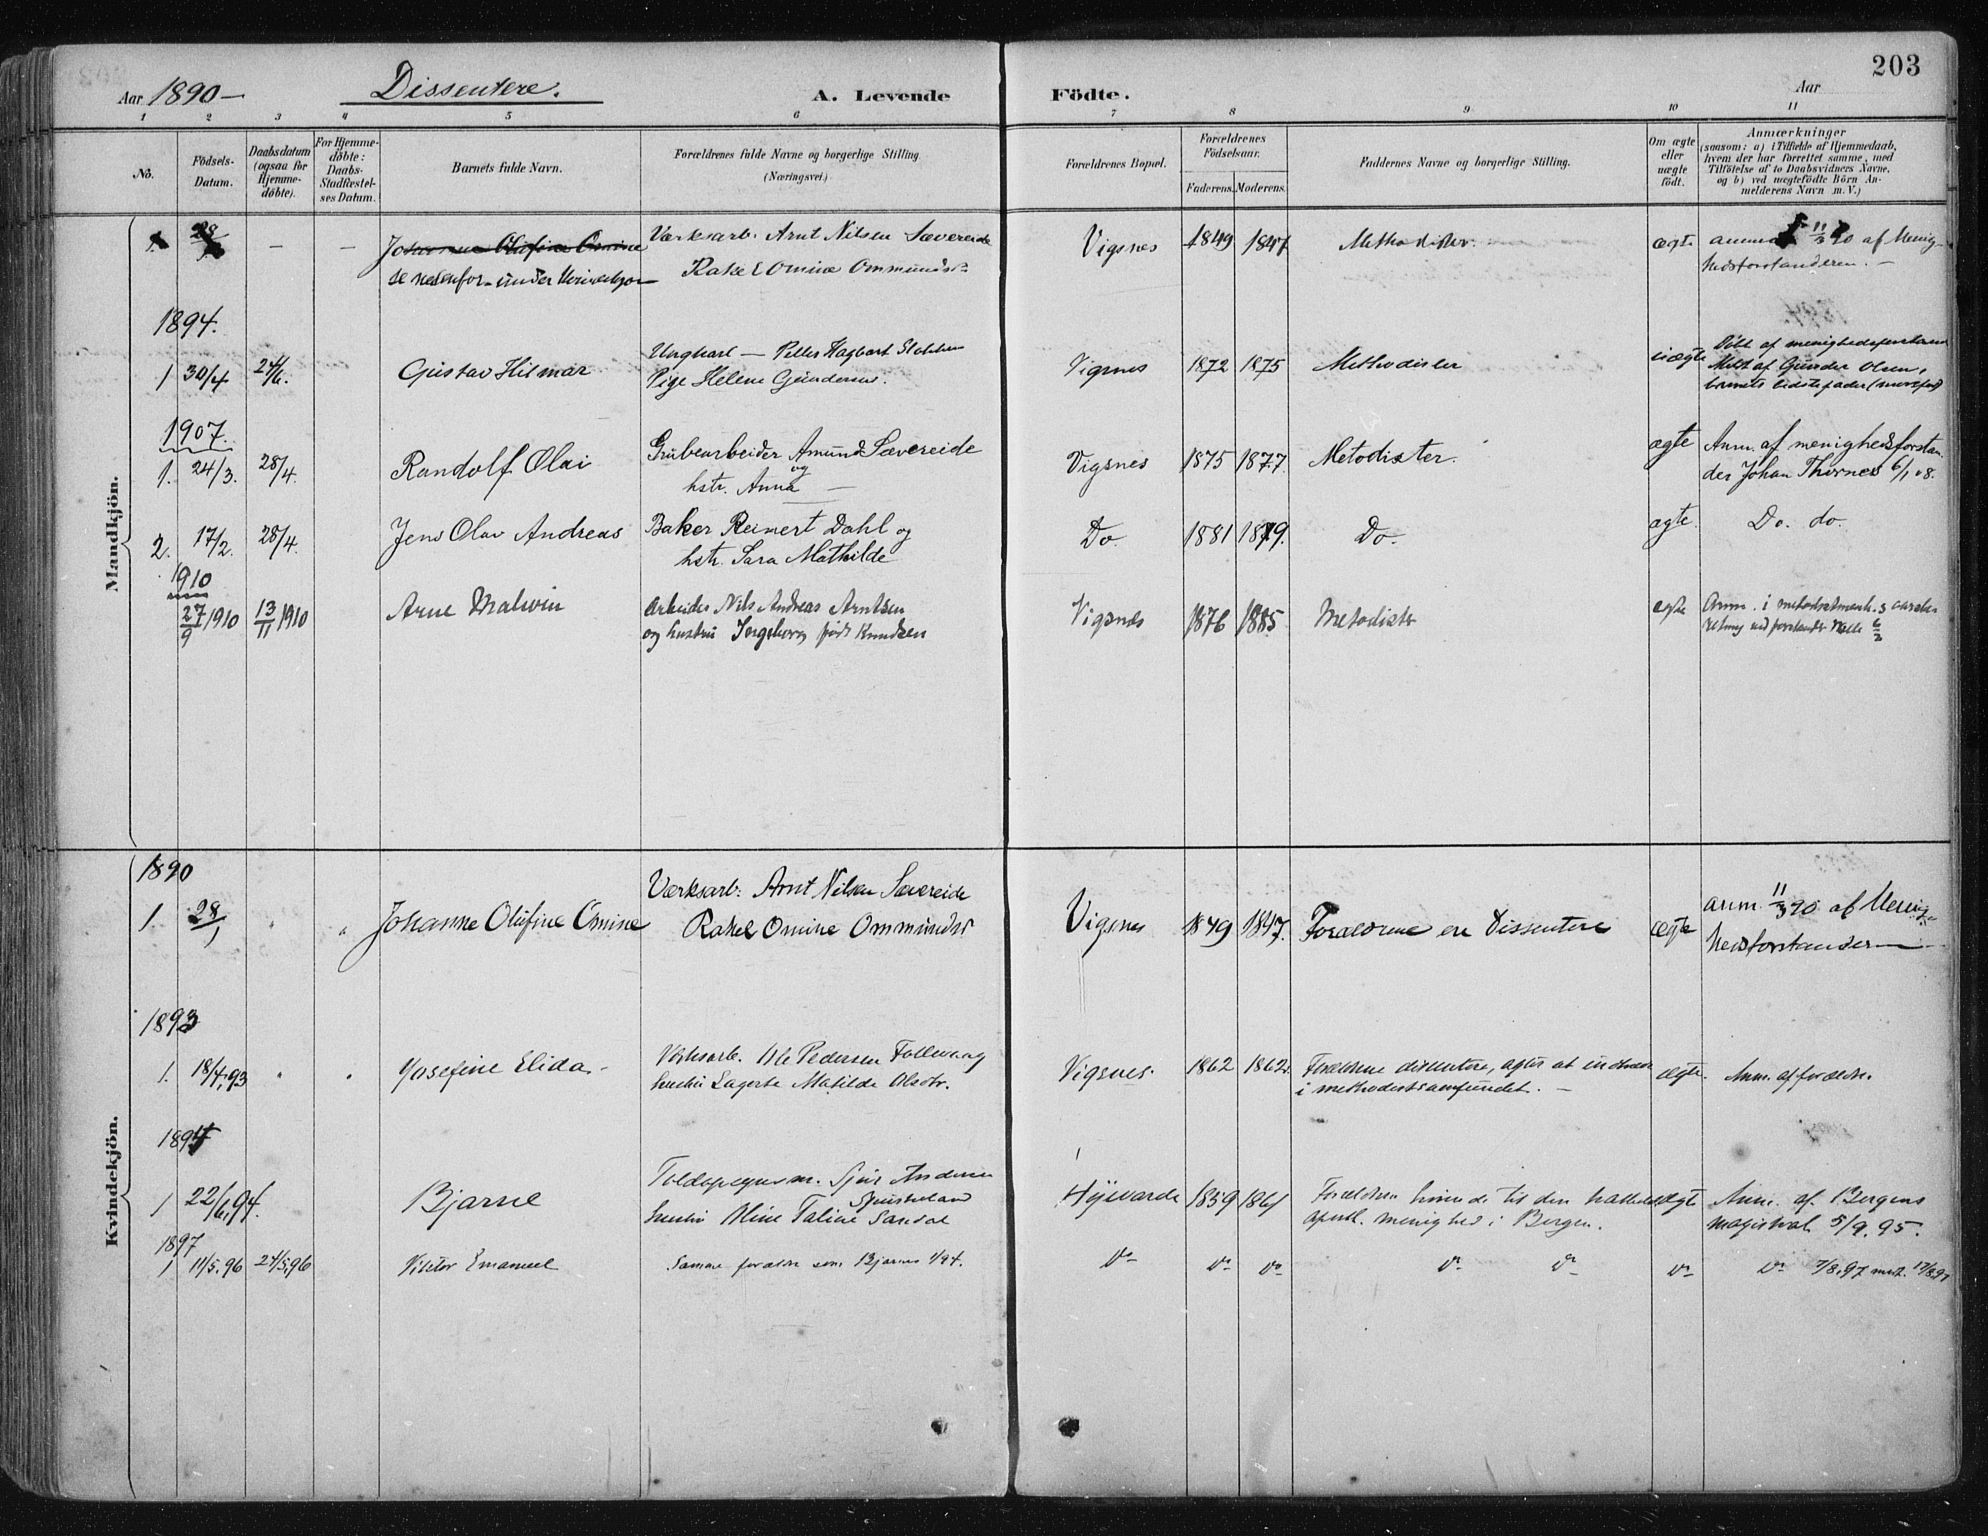 203
Aar 1890 — Dissentere. A. Levende Födte. Aar
1 2 3 4 5 6 7 8 9 10 11
No. Födsels-Datum. Daabsdatum (ogsaa for Hjemme-döbte). For Hjemme-döbte: Daabs-Stadfæstel-ses Datum. Barnets fulde Navn. Forældrenes fulde Navne og borgerlige Stilling. (Næringsvei.) Forældrenes Bopæl. Forældrenes Födselsaar. Faderens. Moderens. Faddernes Navne og borgerlige Stilling. Om ægte eller uægte födt. Anmærkninger (saasom: a) i Tilfælde af Hjemmedaab, hvem der har forrettet samme, med Tilföielse af to Daabsvidners Navne, og b) ved uægtefödte Börn An-melderens Navn m. V.)
Mandkjön.
1. 28 — — Johanne Olufine Omine Værksarb. Arnt Nilsen Sævereide Vigsnes 1849 1847 Methodister. ægte anm 11/3 90 af Menig-
se nedenfor under Kvindekjøn Rakel Omine Ommundsdr hedsforstanderen. —
1894.
1 30/4 24/6. Gustav Hilmar Ungkarl — Peder Hagbart Pige Helene Gundersen. Vigsnes 1872 1875 Methodister uægte Döbt af menighedsforstand Meldt af Gunder Olsen, barnets bedstefader (morfad)
1907.
1. 24/3. 28/4. Randolf Olai Grubearbeider Amund Sævereide og hstr. Anna — Vigsnes 1875 1877. Metodister. ægte Anm. af menighedsforstan-
der Johan Thornes 6/1 08.
2. 17/2. 28/4. Jens Olav Andreas Baker Reinert Dahl og hstr. Sara Mathilde Do. 1881 1879. Do. ægte. Do. do.
1910
27/9 1910 13/11 1910 Arne Malvin Arbeider Nils Andreas Arntsen og hustru Ingeborg født Knudsen Vigsnes 1876 1885 Metodister ægte Anm. i metodistmenh.s
Kvindekjön.
1890
1. 28/1 " " Johanne Olufine Omine Værksarb: Arnt Nilsen Sævereide Rakel Omine Ommundsdr Vigsnes 1849 1847. Forældrene ere Dissentere ægte anm. 11/3 90 af Menig-
hedsforstanderen —
1893
1. 18/4, 93 " " Josefine Elida. Værksarb. Ole Pedersen Follevaag hustru Lagerta Matilde Olsdtr. Vigsnes. 1862 1862. Forældrene dissentere, agter at indtræde i methodistsamfundet. — ægte. Anm. af forældre.
1894
1 22/6, 94. Bjarne Toldopsynsm. Sjur Andersen hustru Oline Taline Sandal Høievarde 1859 1861 Forældre henvende til den katholske apost. menighed i Bergen. ægte Anm. af Bergens magistrat 5/9. 95.
1897
1 11/5. 96 24/5. 96 Viktor Emanuel Samme forældre som Bjarnes 1/94. Do Do Do Do Do Do Do 7/8. 97 modt. 17/8. 97